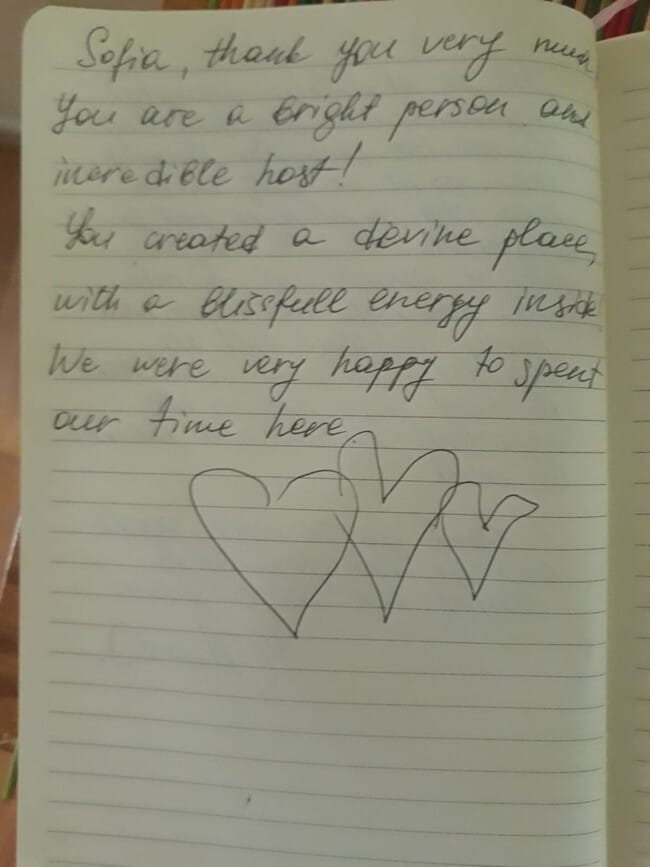 Sofia, thank you very much
You are a bright person and
incredible host!
You created a devine place,
with a blissfull energy inside
We were very happy to spent
our time here